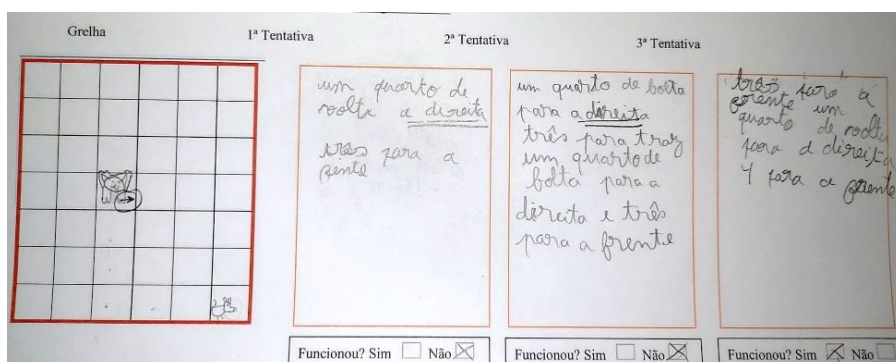 Grelha
1ª Tentativa
2ª Tentativa
3ª Tentativa
um quarto de
volta a direita
três para a
fente
um quarto de bolta
para a direita
três para traz
um quarto de
bolta para a
direita e três
para a frente
três para a
frente um
quarto de volta
para a direita
4 para a frente
Funcionou? Sim Não
Funcionou? Sim Não
Funcionou? Sim Não